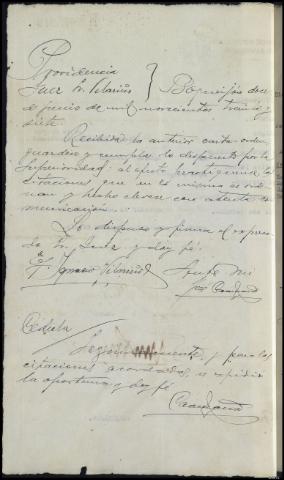 Providencia
Juez Sr. Vilariño } Bocneijón doce
de junio de mil novecientos treinta y
siete.
Recibida la anterior carta-orden
guardese y cumplase lo dispuesto por la
Superioridad; al efecto practiquense las
citaciones que en la misma se orde-
nan y hecho elevese con atenta co-
municación.
Lo dispuso y firma el expresa-
do Sr. Juez y doy fé.
Ante mi
Cédula
Seguidamente, y para las
citaciones acordadas, se expidió
la oportuna y doy fé